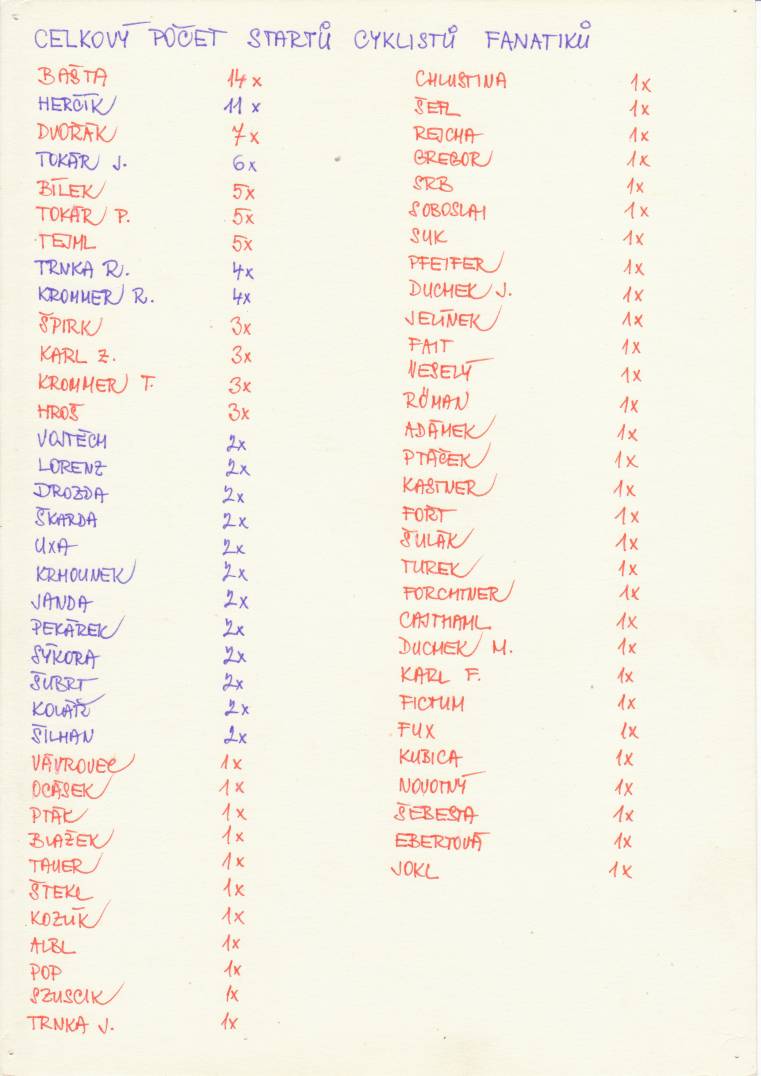 CELKOVÝ POČET STARTŮ CYKLISTŮ FANATIKŮ
BAŠTA 14x
HERČÍK 11x
DVOŘÁK 7x
TOKÁR J. 6x
BÍLEK 5x
TOKÁR P. 5x
TEJML 5x
TRNKA R. 4x
KROMMER R. 4x
ŠPIRK 3x
KARL Z. 3x
KROMMER T. 3x
HROŠ 3x
VOJTĚCH 2x
LORENZ 2x
DROZDA 2x
ŠKARDA 2x
UXA 2x
KRHOUNEK 2x
JANDA 2x
PEKÁREK 2x
SÝKORA 2x
ŠUBRT 2x
KOLÁŘ 2x
ŠILHAN 2x
VÁVROVEC 1x
OCÁSEK 1x
PTÁK 1x
BLAŽEK 1x
TAUER 1x
ŠTEKL 1x
KOZLÍK 1x
ALBL 1x
POP 1x
SZUSCIK 1x
TRNKA J. 1x
CHLUSTINA 1x
ŠEFL 1x
REJCHA 1x
GREGOR 1x
SRB 1x
SOBOSLAI 1x
SUK 1x
PFEIFER 1x
DUCHEK J. 1x
JELÍNEK 1x
FAIT 1x
VESELÝ 1x
RÖMAN 1x
ADÁMEK 1x
PTÁČEK 1x
KASTNER 1x
FOŘT 1x
ŠULÁK 1x
TUREK 1x
FORCHTNER 1x
CAJTHAML 1x
DUCHEK M. 1x
KARL F. 1x
FICTUM 1x
FUX 1x
KUBICA 1x
NOVOTNÝ 1x
ŠEBESTA 1x
EBERTOVÁ 1x
JOKL 1x